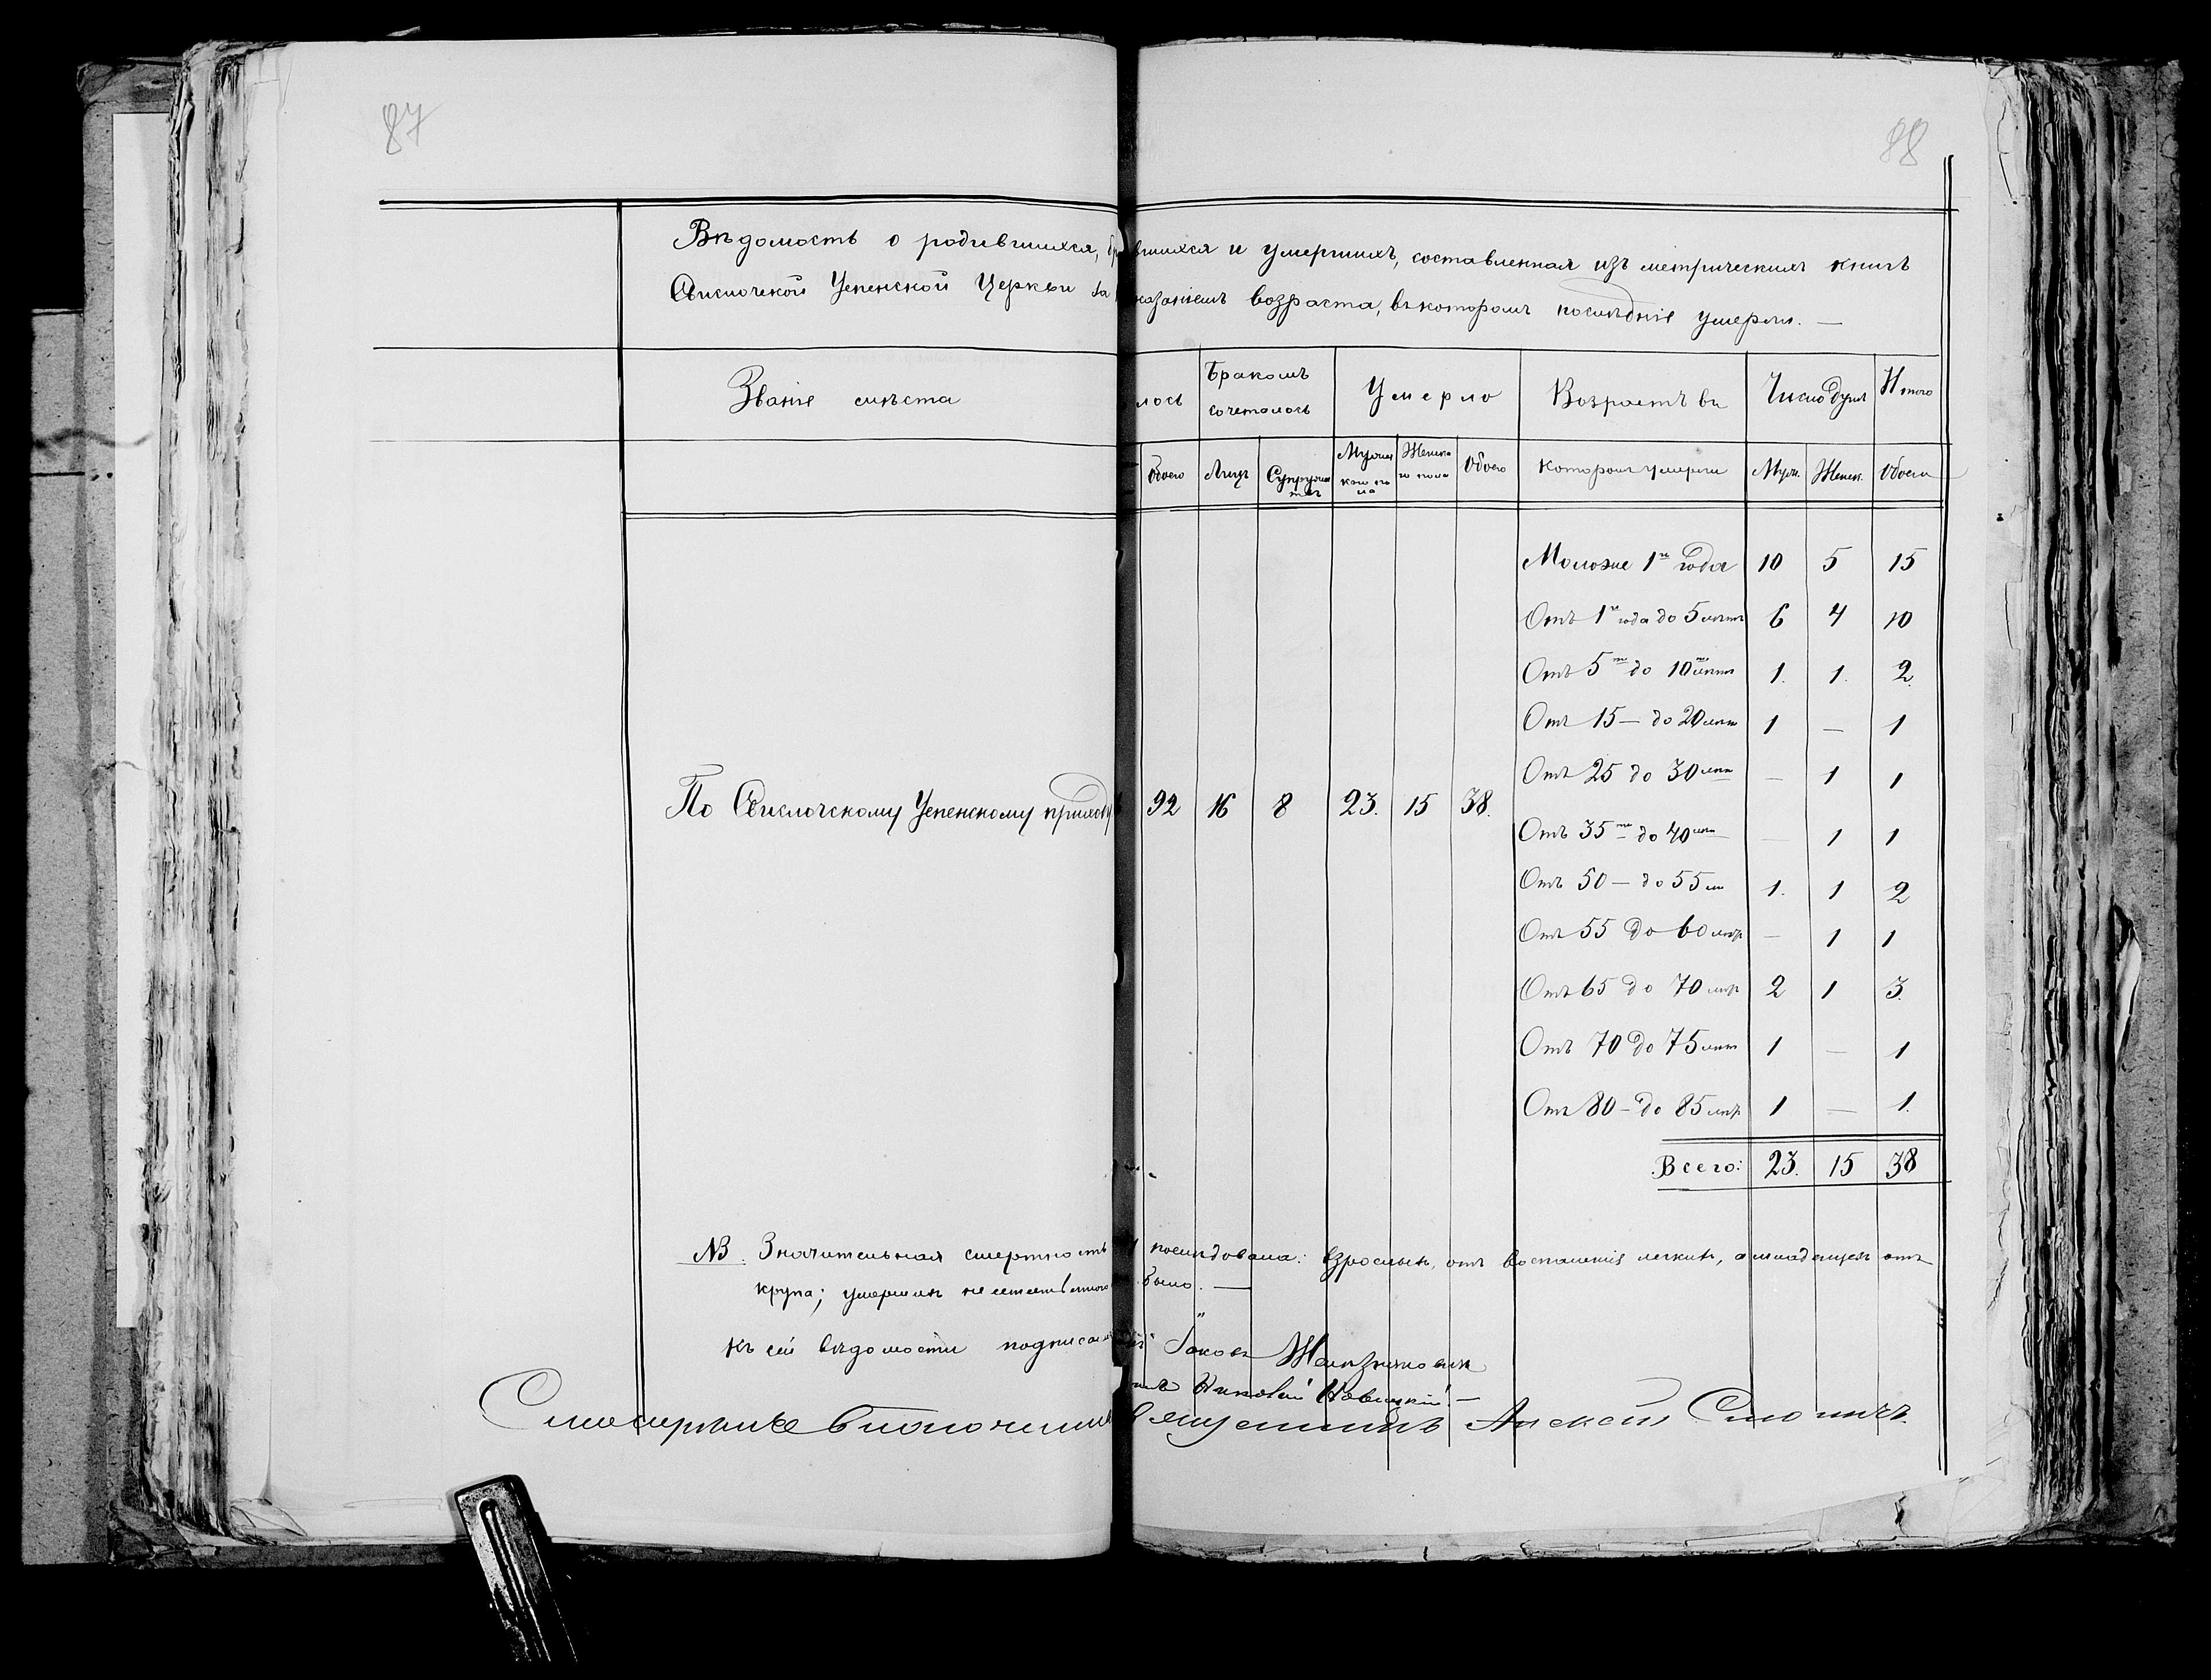 87
88
Вѣдомость о родившихся, бр вшихся и умершихъ, составленная изъ метрическихъ книгъ
Свислочской Успенской Церкви за казаніемъ возраста, въ которомъ послѣдніе умерли. —
Званіе мѣста
лось Бракомъ сочеталось Умерло Возрастъ въ Число душъ Итого
Обоего Лицъ Супружествъ Мужескаго пола Женскаго пола Обоего которомъ умерли Муж. Женск. Обоего
Моложе 1го года 10 5 15
Отъ 1го года до 5 лѣтъ 6 4 10
Отъ 5ти до 10ти лѣтъ 1. 1. 2.
Отъ 15 — до 20 лѣтъ 1 — 1
Отъ 25 до 30 лѣтъ — 1 1
По Свислочскому Успенскому приходу 92 16 8 23. 15 38.
Отъ 35ти до 40 лѣтъ — 1 1
Отъ 50 — до 55 лѣ 1. 1 2
Отъ 55 до 60 лѣтъ — 1 1
Отъ 65 до 70 лѣтъ 2 1 3.
Отъ 70 до 75 лѣтъ 1 — 1
Отъ 80 — до 85 лѣтъ 1 — 1.
Всего: 23. 15 38
NB. Значительная смертность послѣдовала: взрослыхъ, отъ воспаленія легкихъ, а младенцевъ отъ
крупа; умершихъ неестественно было. —
Къ сей вѣдомости подписали Іаковъ
Николай Новицкій. —
Алексей